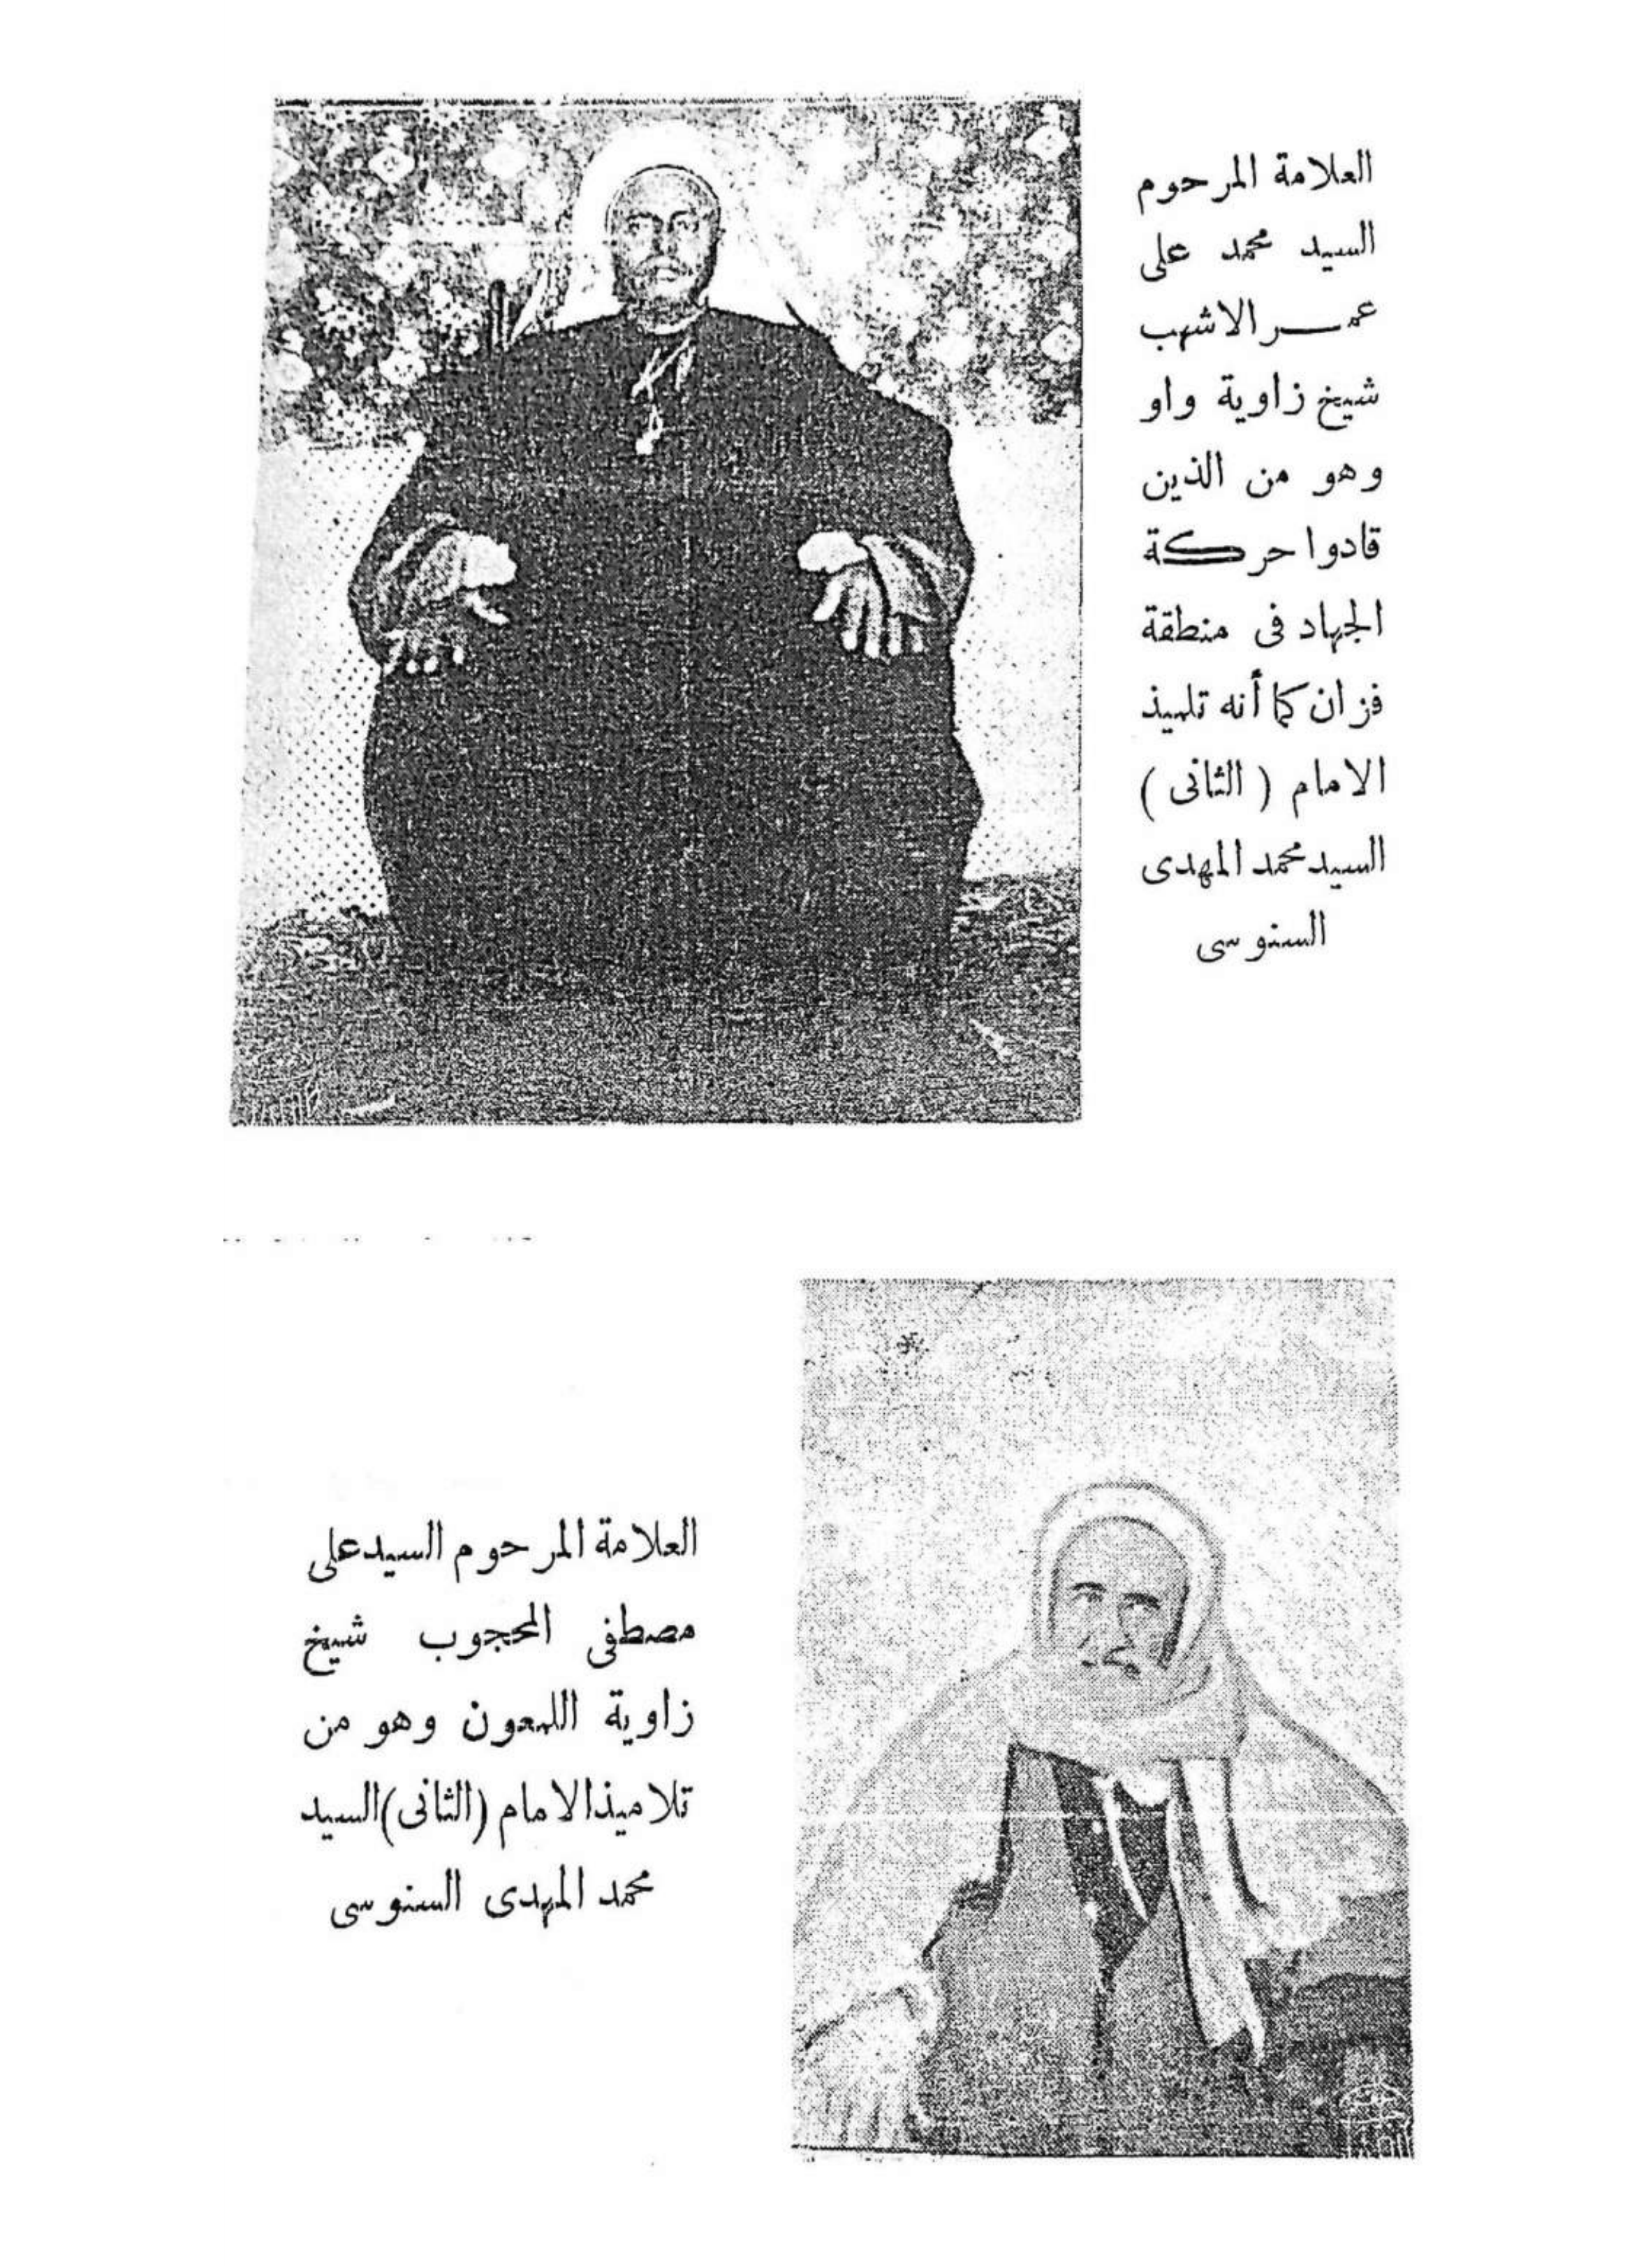 العلامة المرحوم
السيد محمد على
عمر الاشهب
شيخ زاوية واو
وهو من الذين
قادوا حركة
الجهاد فى منطقة
فزان كما أنه تلميذ
الامام ( الثانى )
السيد محمد المهدى
السنوسى
العلامة المرحوم السيد على
مصطفى المحجوب شيخ
زاوية اللمعون وهو من
تلاميذ الامام (الثانى) السيد
محمد المهدى السنوسى